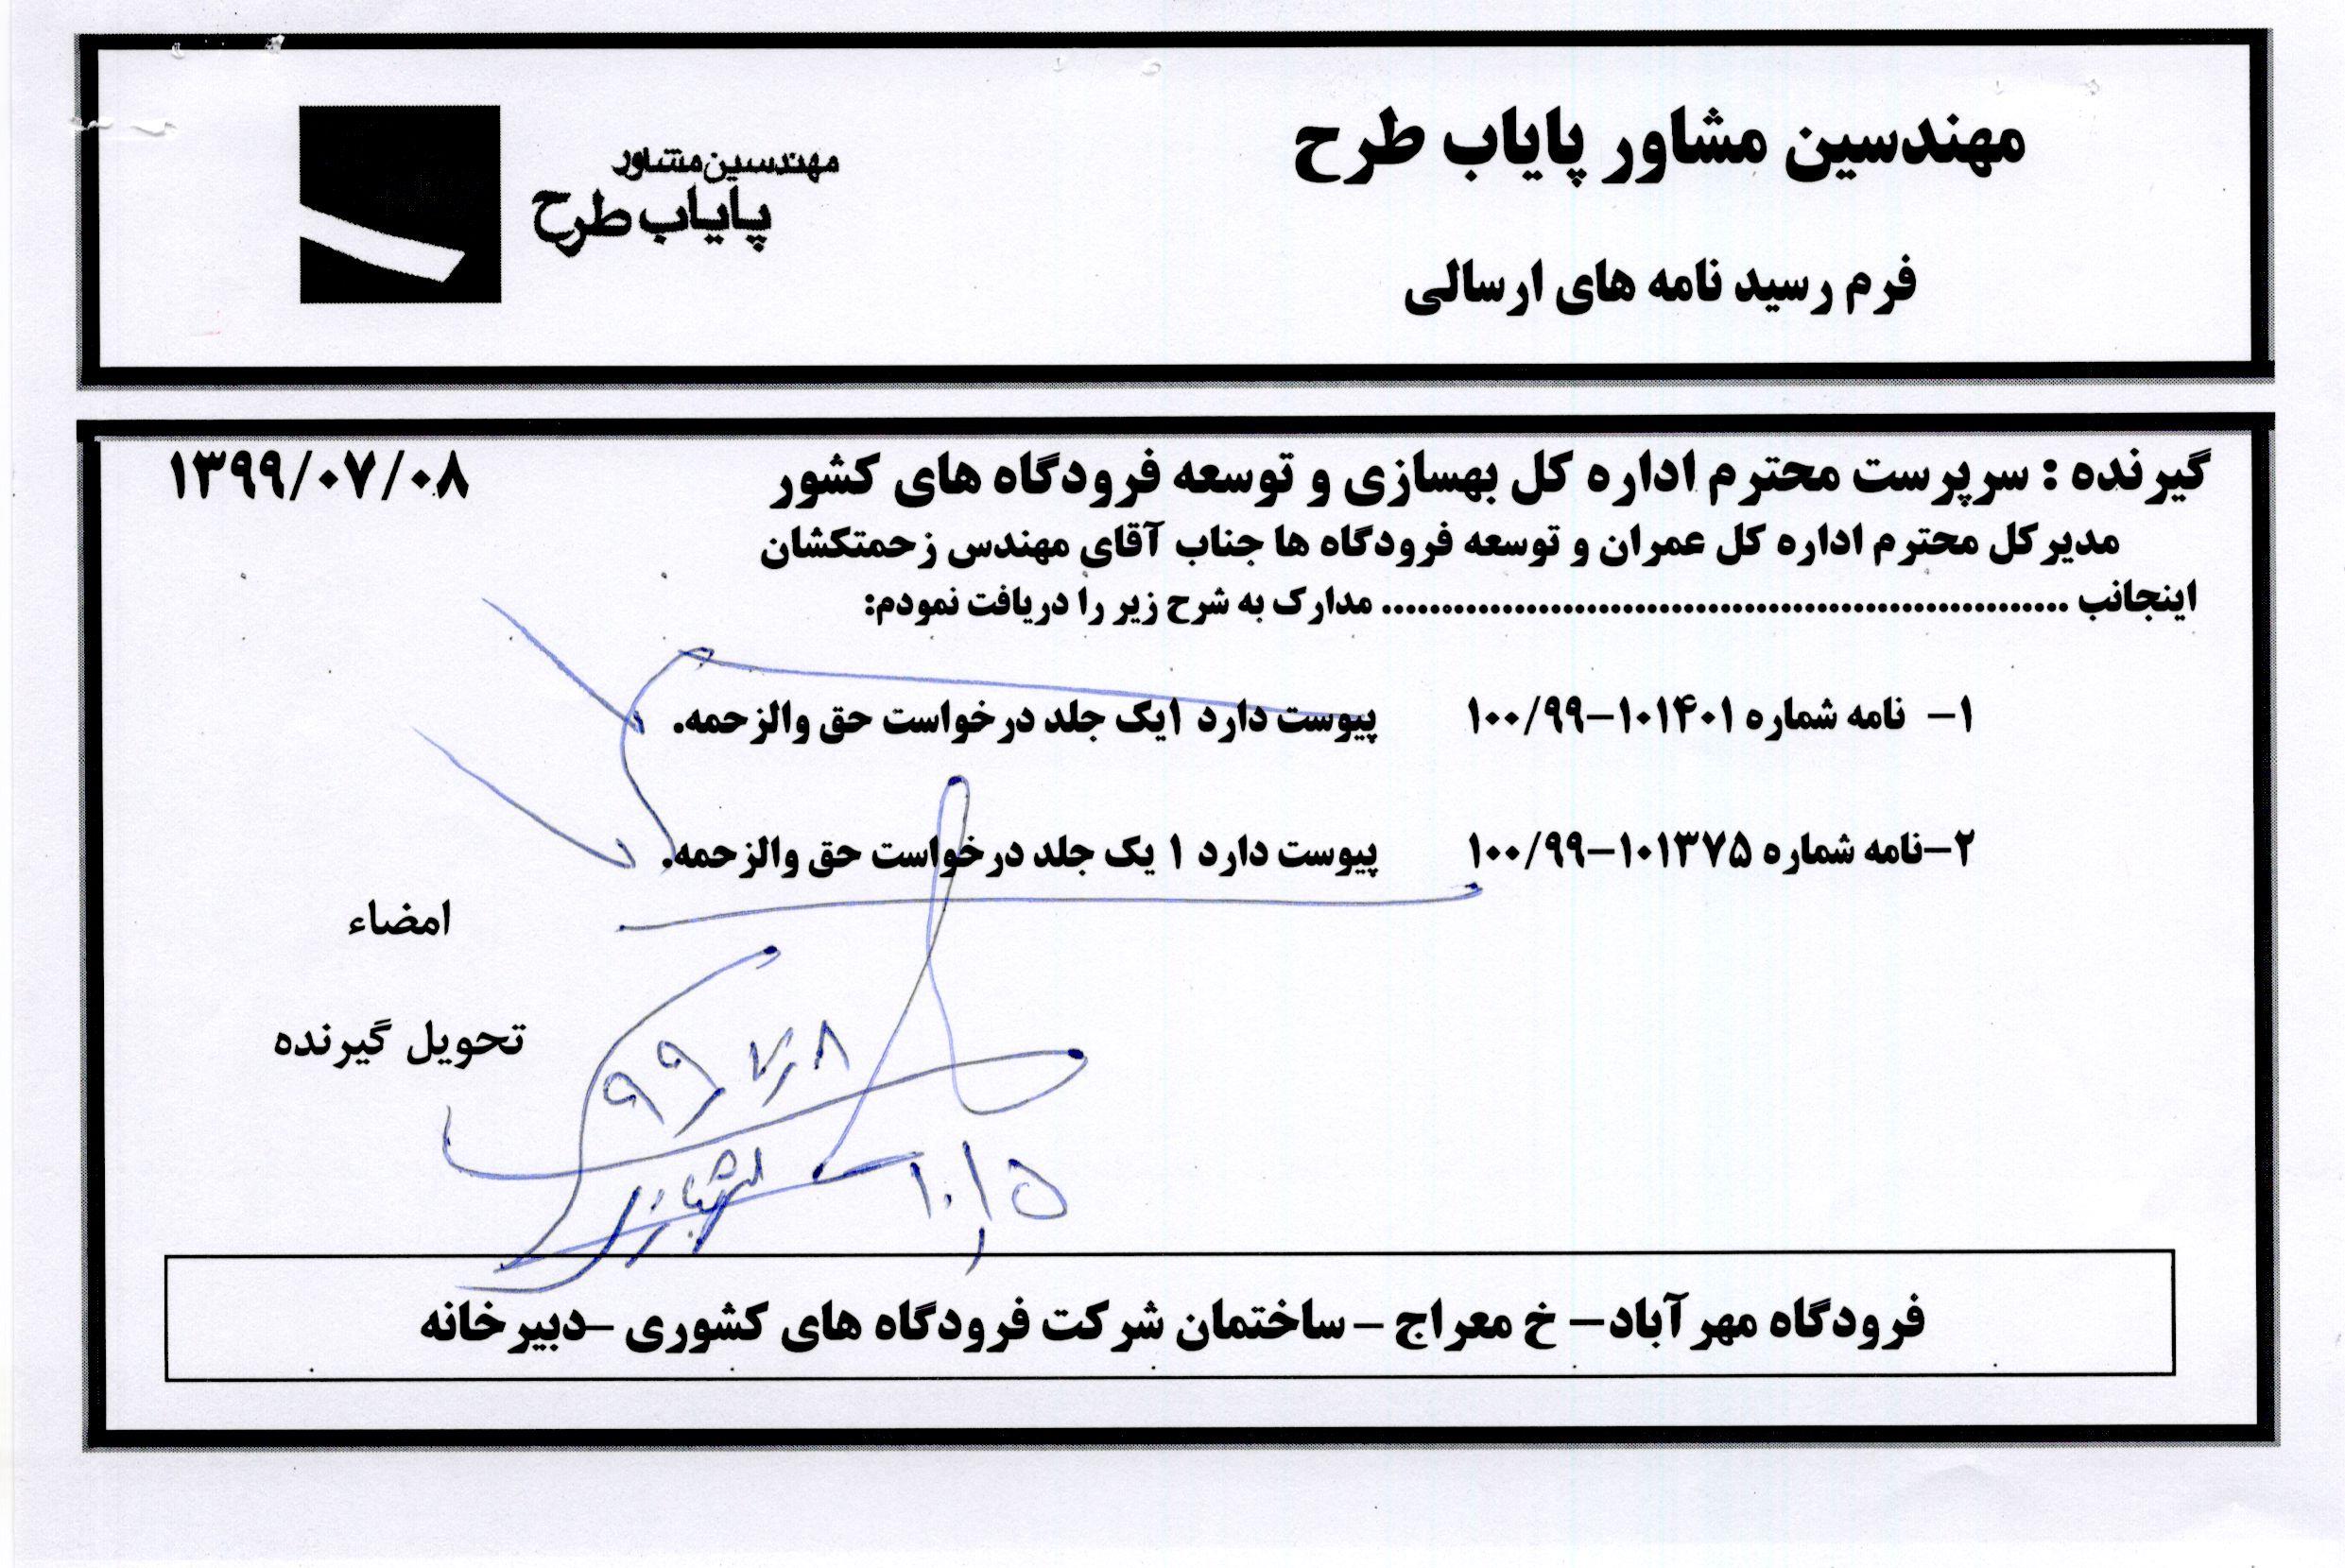 مهندسین مشاور پایاب طرح
مهندسین مشاور
پایاب طرح
فرم رسید نامه های ارسالی
گیرنده : سرپرست محترم اداره کل بهسازی و توسعه فرودگاه های کشور ۱۳۹۹/۰۷/۰۸
مدیرکل محترم اداره کل عمران و توسعه فرودگاه ها جناب آقای مهندس زحمتکشان
اینجانب .......................................................... مدارک به شرح زیر را دریافت نمودم:
۱- نامه شماره ۱۰۰/۹۹-۱۰۱۴۰۱ پیوست دارد ۱یک جلد درخواست حق والزحمه.
۲-نامه شماره ۱۰۰/۹۹-۱۰۱۳۷۵ پیوست دارد ۱ یک جلد درخواست حق والزحمه.
امضاء
تحویل گیرنده
۹۹٫۷٫۸
۱۰٫۱۵
فرودگاه مهرآباد– خ معراج – ساختمان شرکت فرودگاه های کشوری –دبیرخانه